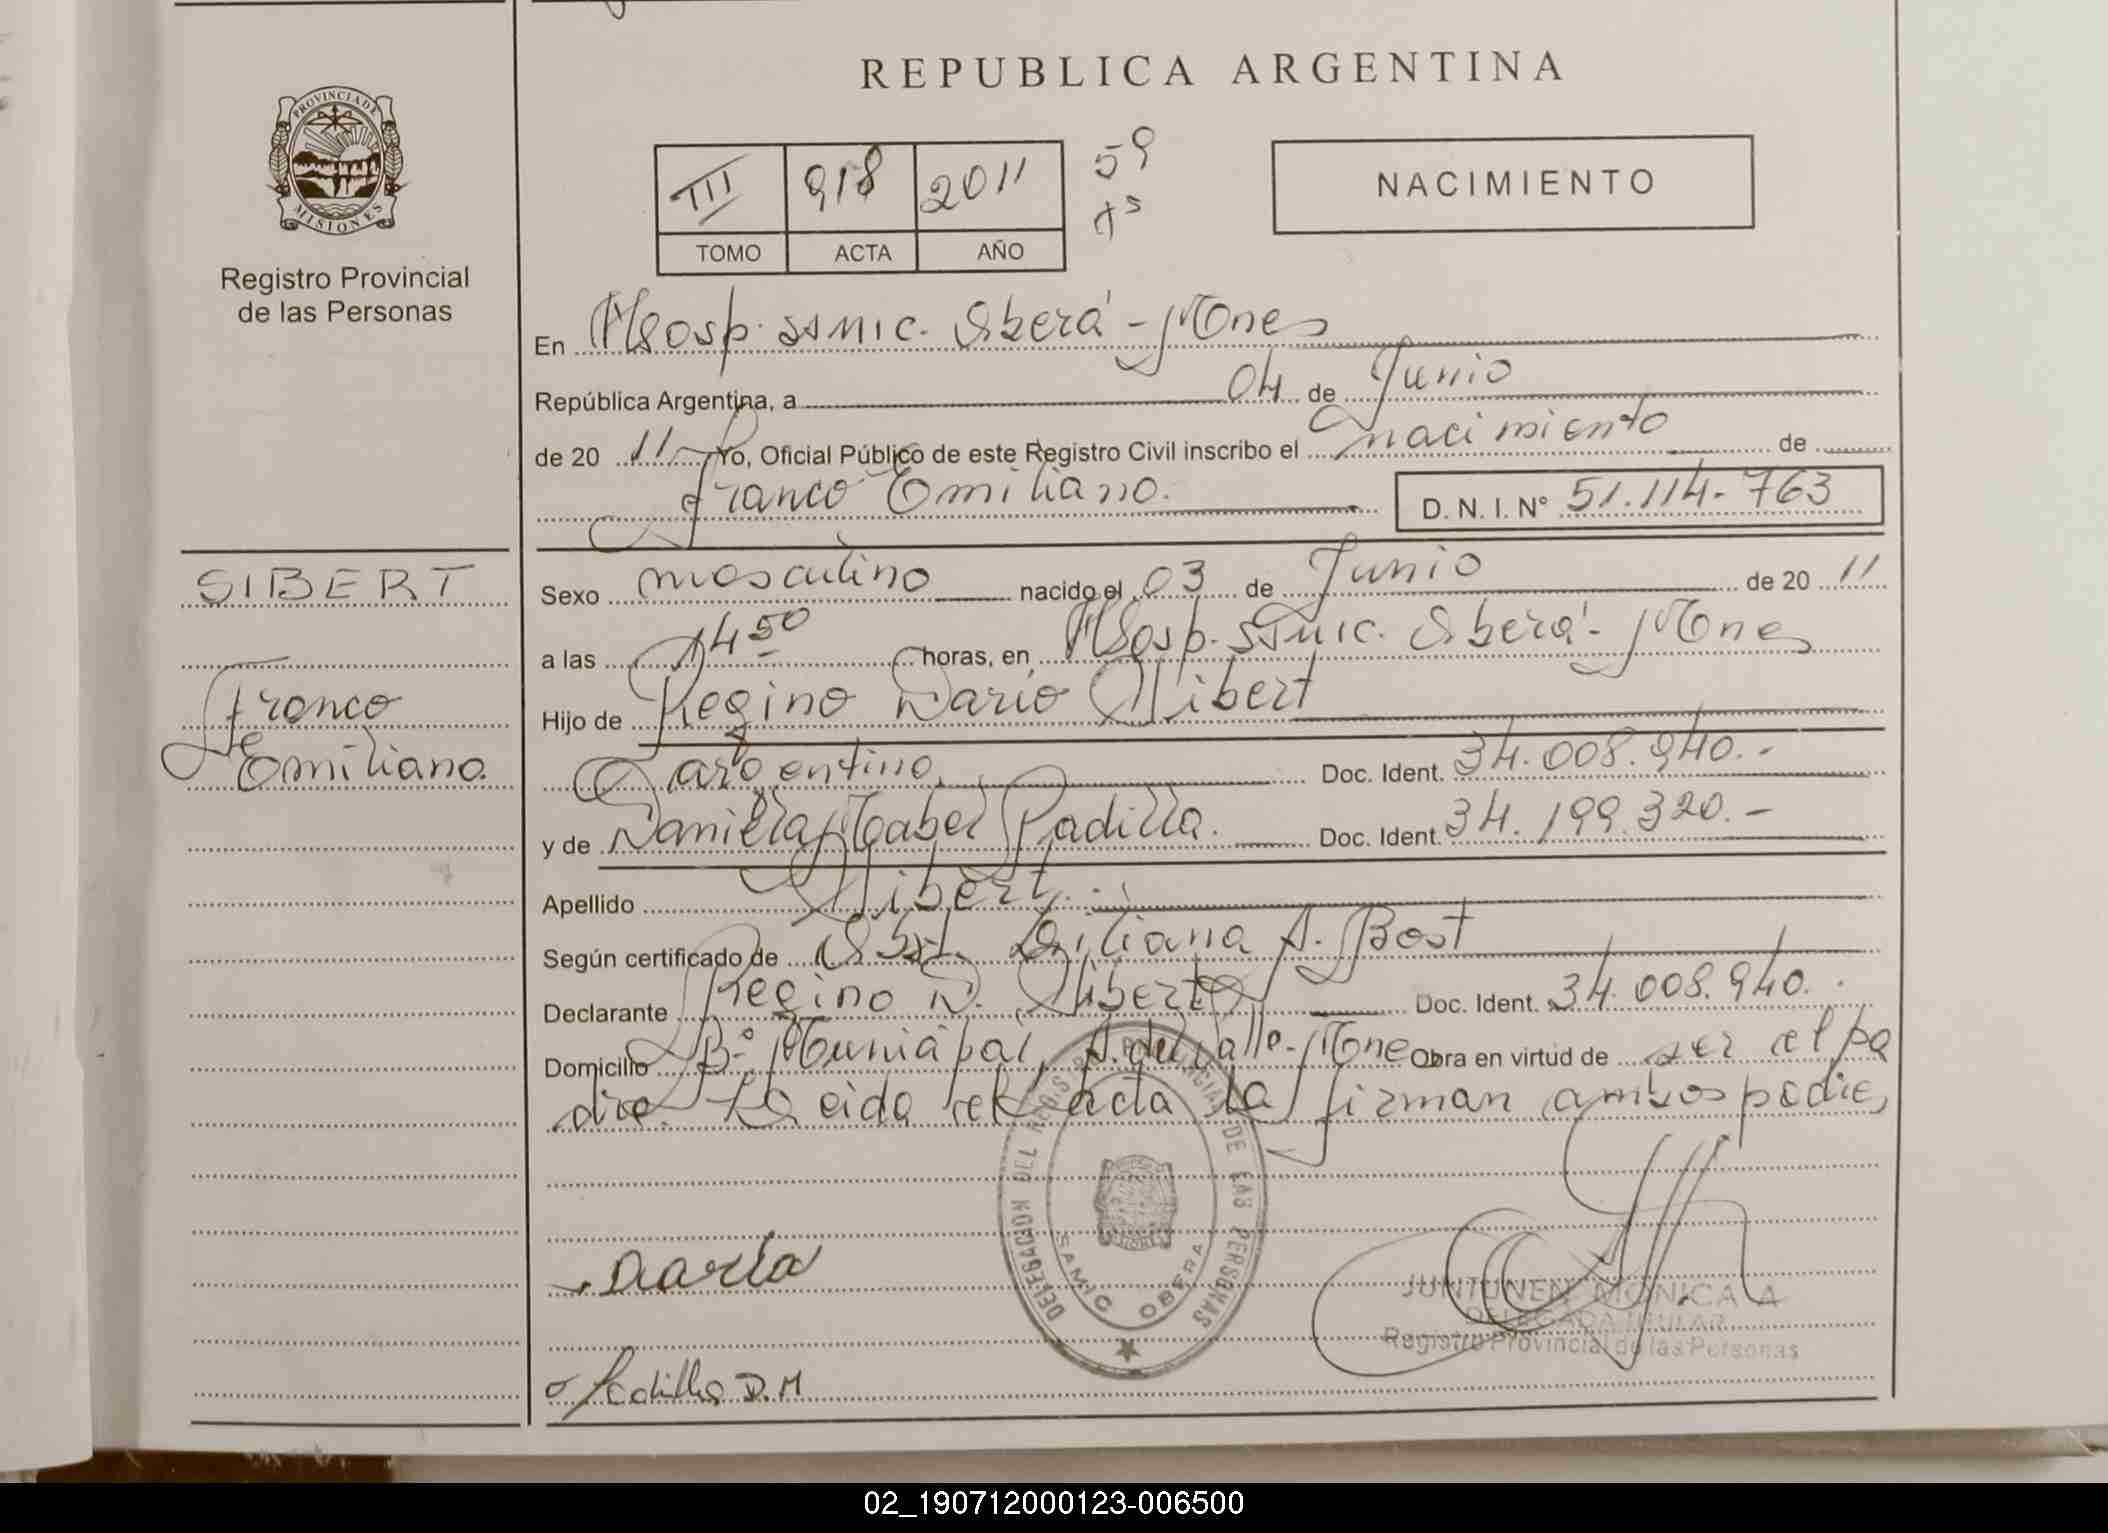 REPUBLICA ARGENTINA
PROVINCIA DE MISIONES
Registro Provincial
de las Personas
III 918 2011
TOMO ACTA AÑO
NACIMIENTO
En Hosp. Mnes
República Argentina, a 04 de Junio
de 20 11 Yo, Oficial Público de este Registro Civil inscribo el nacimiento de
Franco Emiliano. D. N. I. N° 51.114.763
SIBERT
Franco
Emiliano.
Sexo masculino nacido el 03 de Junio de 20 11
a las 14 50 horas, en Hosp. Mnes
Hijo de Regino Dario Sibert
argentino Doc. Ident. 34.008.940.-
y de Daniela Mabel Padilla. Doc. Ident. 34.199.320.-
Apellido Sibert.
Según certificado de Obst. Liliana A. Bost
Declarante Regino D. Sibert Doc. Ident. 34.008.940.
Domicilio B° Municipal, A. del Valle-Mnes Obra en virtud de ser el pa
dre. Leida el acta la firman ambos padres
DELEGACION DEL REGIS. PROVINCIAL DE LAS PERSONAS
SAMIC OBERA
Dario
Padilla D.M
JUNTUNEN MONICA A
DELEGADA TITULAR
Registro Provincial de las Personas
02_190712000123-006500